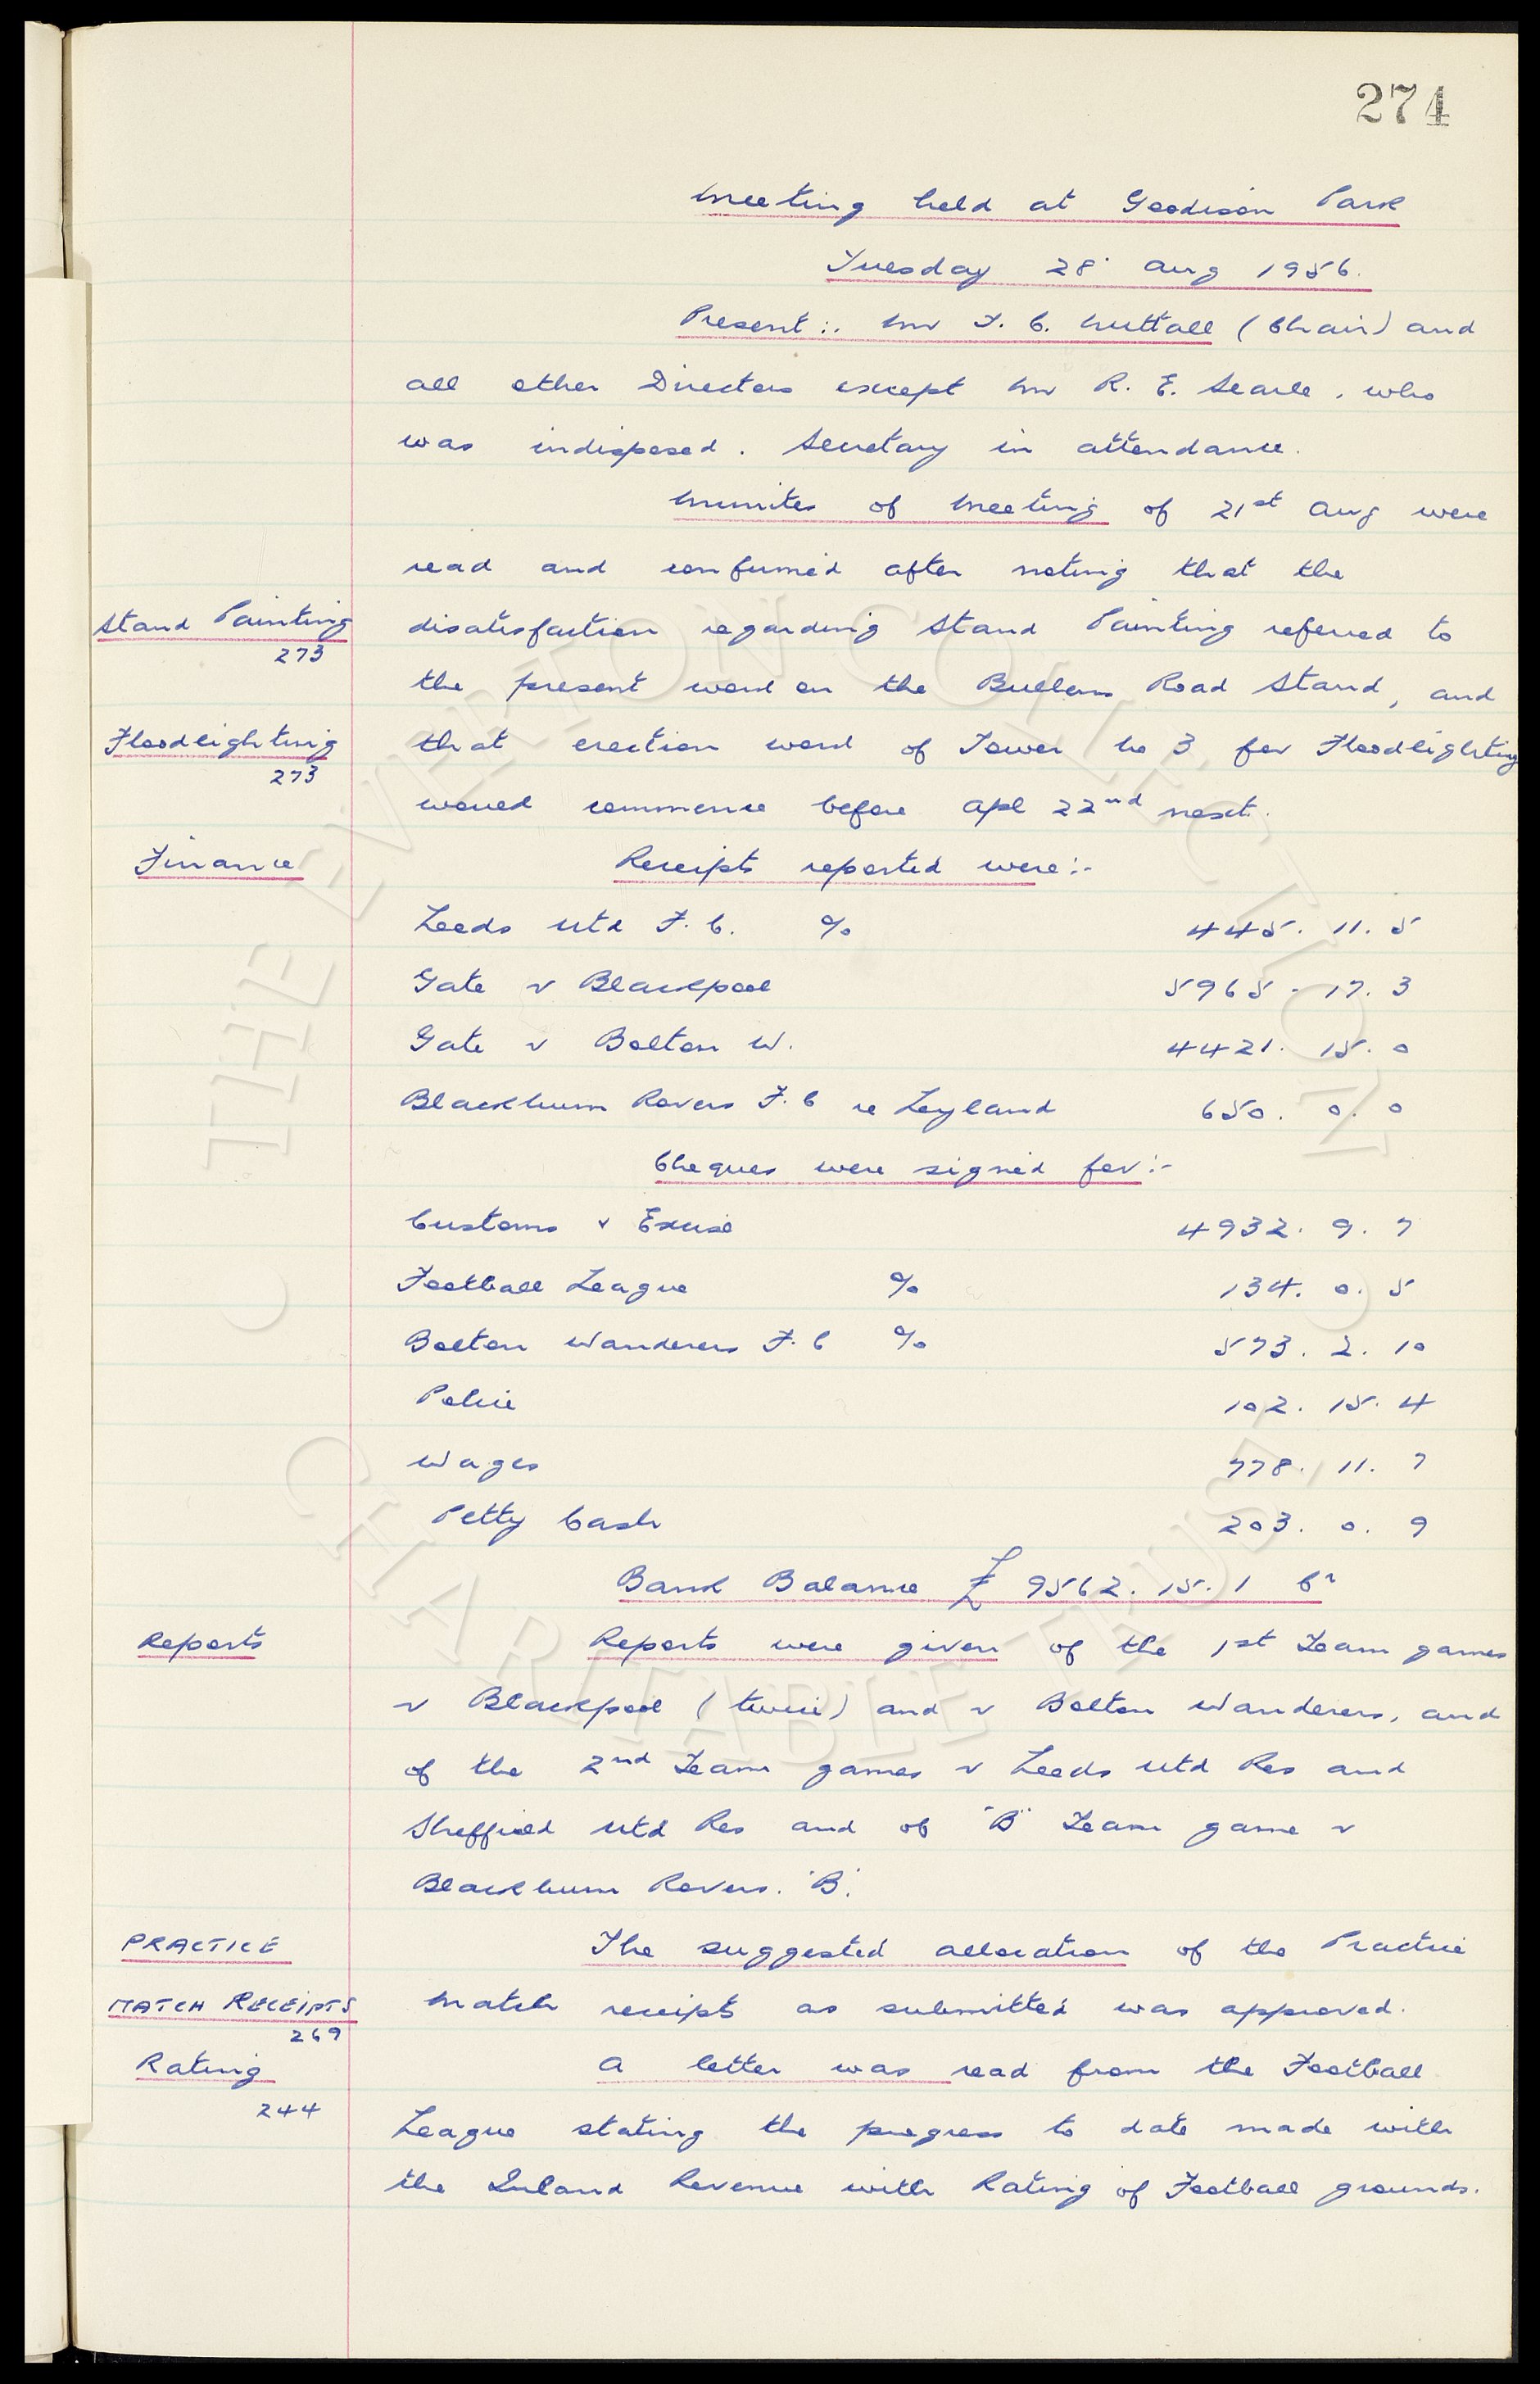 274
Meeting held at Goodison Park
Tuesday 28. Aug 1956.
Present:. Mr F. C. Nuttall (Chair) and
all other Directors except Mr R. E. Searle, who
was indisposed. Secretary in attendance.
Minutes of Meeting of 21st Aug were
read and confirmed after noting that the
Stand Painting disatisfaction regarding Stand Painting referred to
273
the present work on the Bullens Road Stand, and
Floodlighting that erection work of Tower No 3 for Floodlighting
273
would commence before Apl 22nd next.
Finance Receipts reported were:-
Leeds Utd F. C. % 445. 11. 5
Gate v Blackpool 5965. 17. 3
Gate v Bolton W. 4421. 15. 0
Blackburn Rovers F. C re Leyland 650. 0. 0
Cheques were signed for:-
Customs & Excise 4932. 9. 7
Football League % 134. 0. 5
Bolton Wanderers F. C % 573. 2. 10
Police 102. 15. 4
Wages 778. 11. 7
Petty Cash 203. 0. 9
Bank Balance £ 9562. 15. 1 Cr
Reports Reports were given of the 1st Team games
v Blackpool (twice) and v Bolton Wanderers, and
of the 2nd Team games v Leeds Utd Res and
Sheffield Utd Res and of "B" Team game v
Blackburn Rovers. 'B'.
PRACTICE The suggested allocation of the Practice
MATCH RECEIPTS Match receipts as submitted was approved.
269
Rating A letter was read from the Football
244
League stating the progress to date made with
the Inland Revenue with Rating of Football grounds.
THE EVERTON COLLECTION
CHARITABLE TRUST